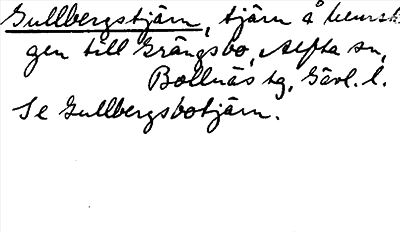 Gullbergstjärn, tjärn å hemsko-
gen till Grängsbo, Alfta sn,
Bollnäs tg, Gävl. l.
Se Gullbergsbotjärn.